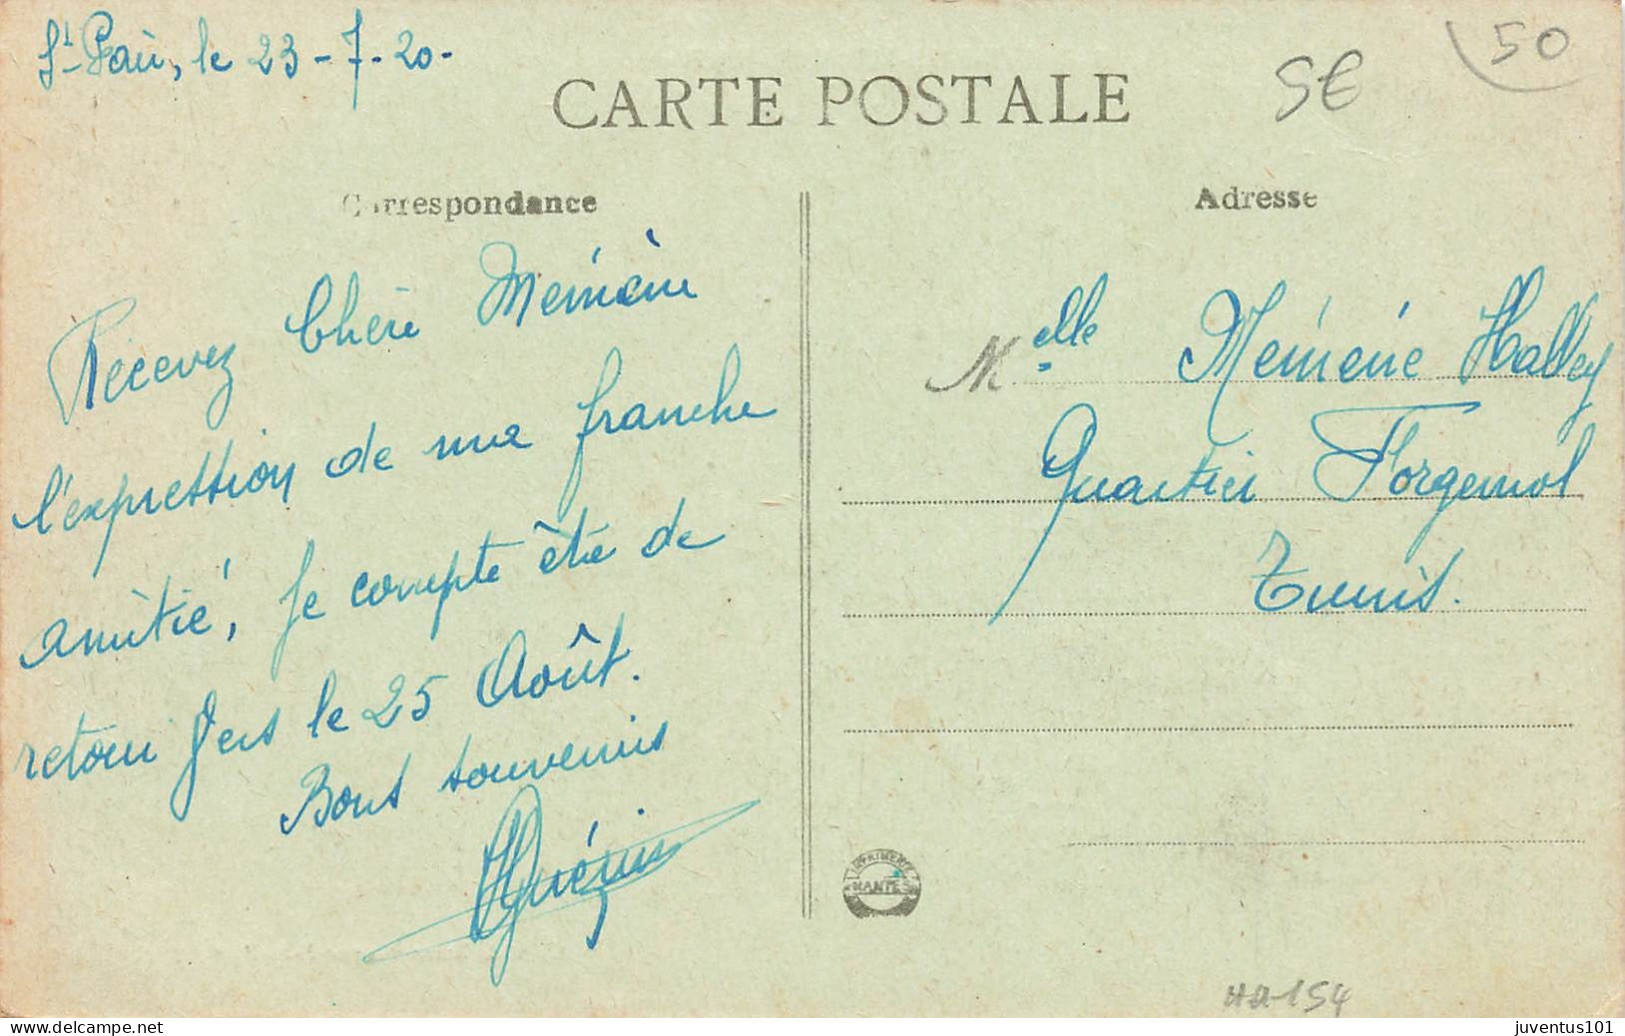 St Pair, le 23-7-20-
CARTE POSTALE
5€
50
Correspondance
Adresse
Recevez Chère Mémène
l'expression de ma franche
amitié, Je compte être de
retour vers le 25 Août.
Bons souvenirs
HGuérin
Melle Mémène Halley
Quartier Forgemol
Tunis.
IMPRIMERIE
NANTES
HA-154
delcampe.net
juventus101